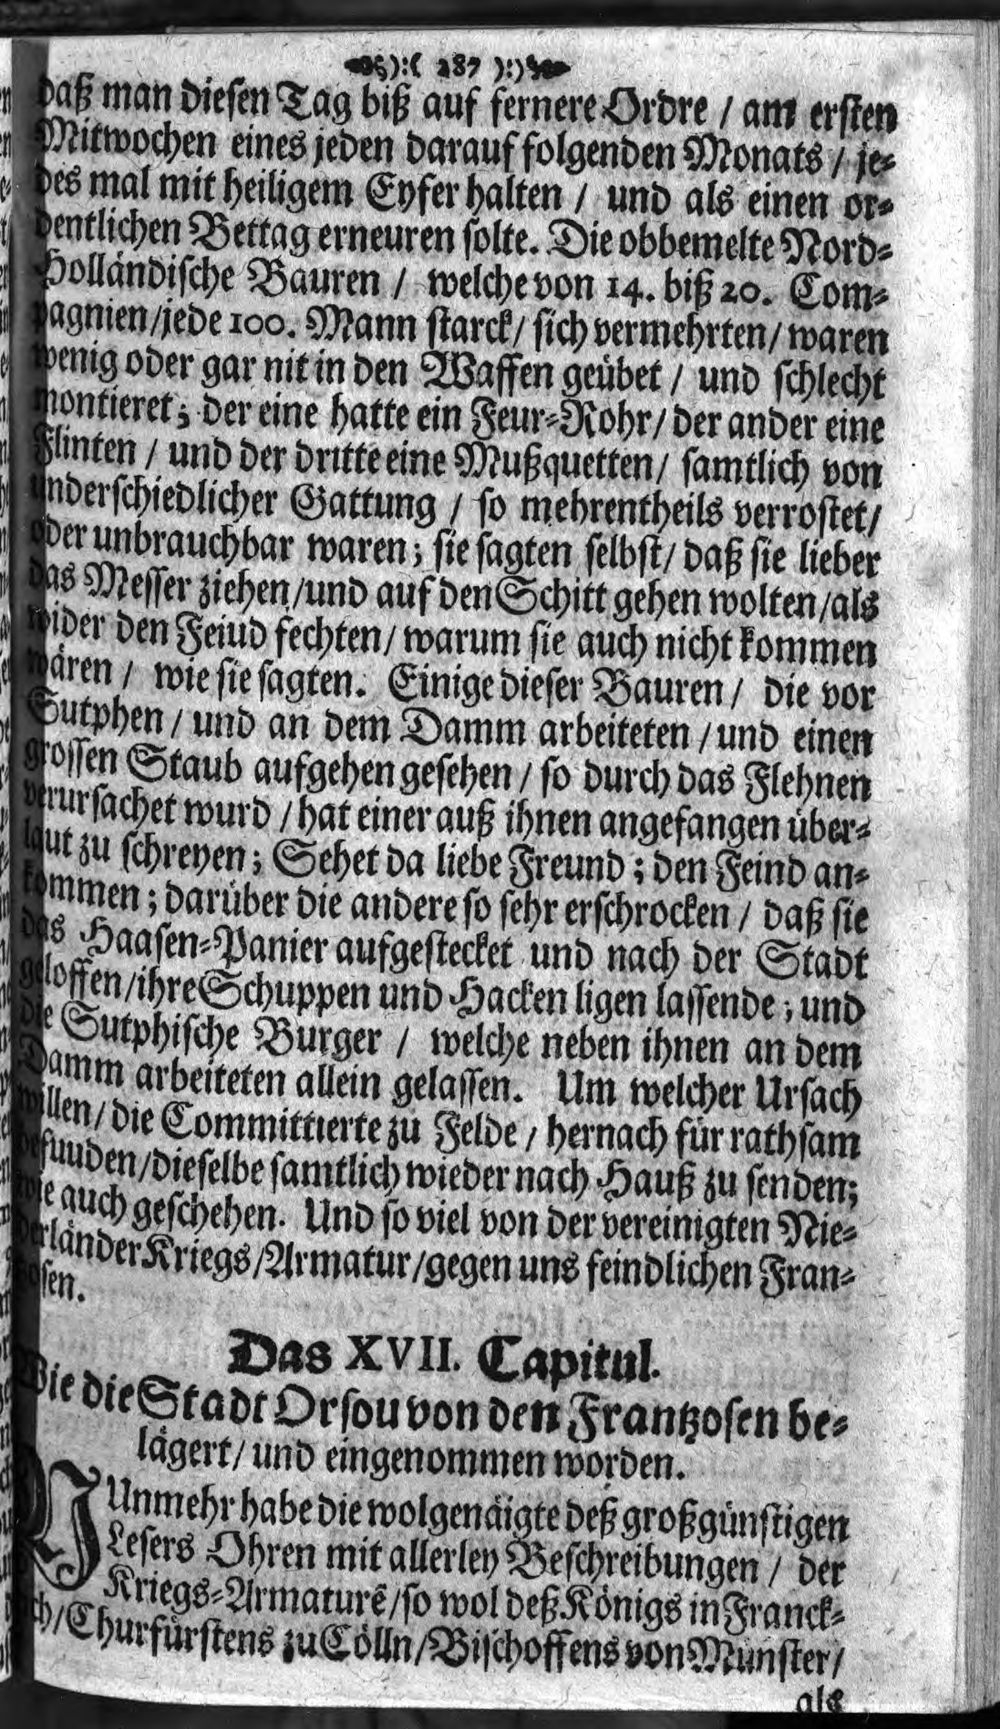 ):( 287 ):(
daß man diesen Tag biß auf fernere Ordre / am ersten
Mitwochen eines jeden darauf folgenden Monats / je-
des mal mit heiligem Eyfer halten / und als einen or-
dentlichen Bettag erneuren solte. Die obbemelte Nord-
Holländische Bauren / welche von 14. biß 20. Com-
pagnien/jede 100. Mann starck/ sich vermehrten/ waren
wenig oder gar nit in den Waffen geübet / und schlecht
montieret; der eine hatte ein Feur-Rohr/ der ander eine
Flinten / und der dritte eine Mußquetten/ samtlich von
underschiedlicher Gattung / so mehrentheils verrostet/
oder unbrauchbar waren; sie sagten selbst/ daß sie lieber
das Messer ziehen/und auf den Schitt gehen wolten/als
wider den Feiud fechten/ warum sie auch nicht kommen
wären / wie sie sagten. Einige dieser Bauren / die vor
Sutphen / und an dem Damm arbeiteten / und einen
grossen Staub aufgehen gesehen / so durch das Flehnen
verursachet wurd / hat einer auß ihnen angefangen über-
laut zu schreyen; Sehet da liebe Freund; den Feind an-
kommen; darüber die andere so sehr erschrocken / daß sie
das Haasen-Panier aufgestecket und nach der Stadt
geloffen/ihre Schuppen und Hacken ligen lassende; und
die Sutphische Burger / welche neben ihnen an dem
Damm arbeiteten allein gelassen. Um welcher Ursach
willen/ die Committierte zu Felde / hernach für rathsam
befuuden/dieselbe samtlich wieder nach Hauß zu senden;
wie auch geschehen. Und so viel von der vereinigten Nie-
derländer Kriegs/Armatur/gegen uns feindlichen Fran-
zosen.
Das XVII. Capitul.
Wie die Stadt Orsou von den Frantzosen be-
lägert/ und eingenommen worden.
NUnmehr habe die wolgenäigte deß großgünstigen
Lesers Ohren mit allerley Beschreibungen / der
Kriegs-Armaturẽ/so wol deß Königs in Franck-
reich/Churfürstens zu Cölln/Bischoffens von Münster/
als